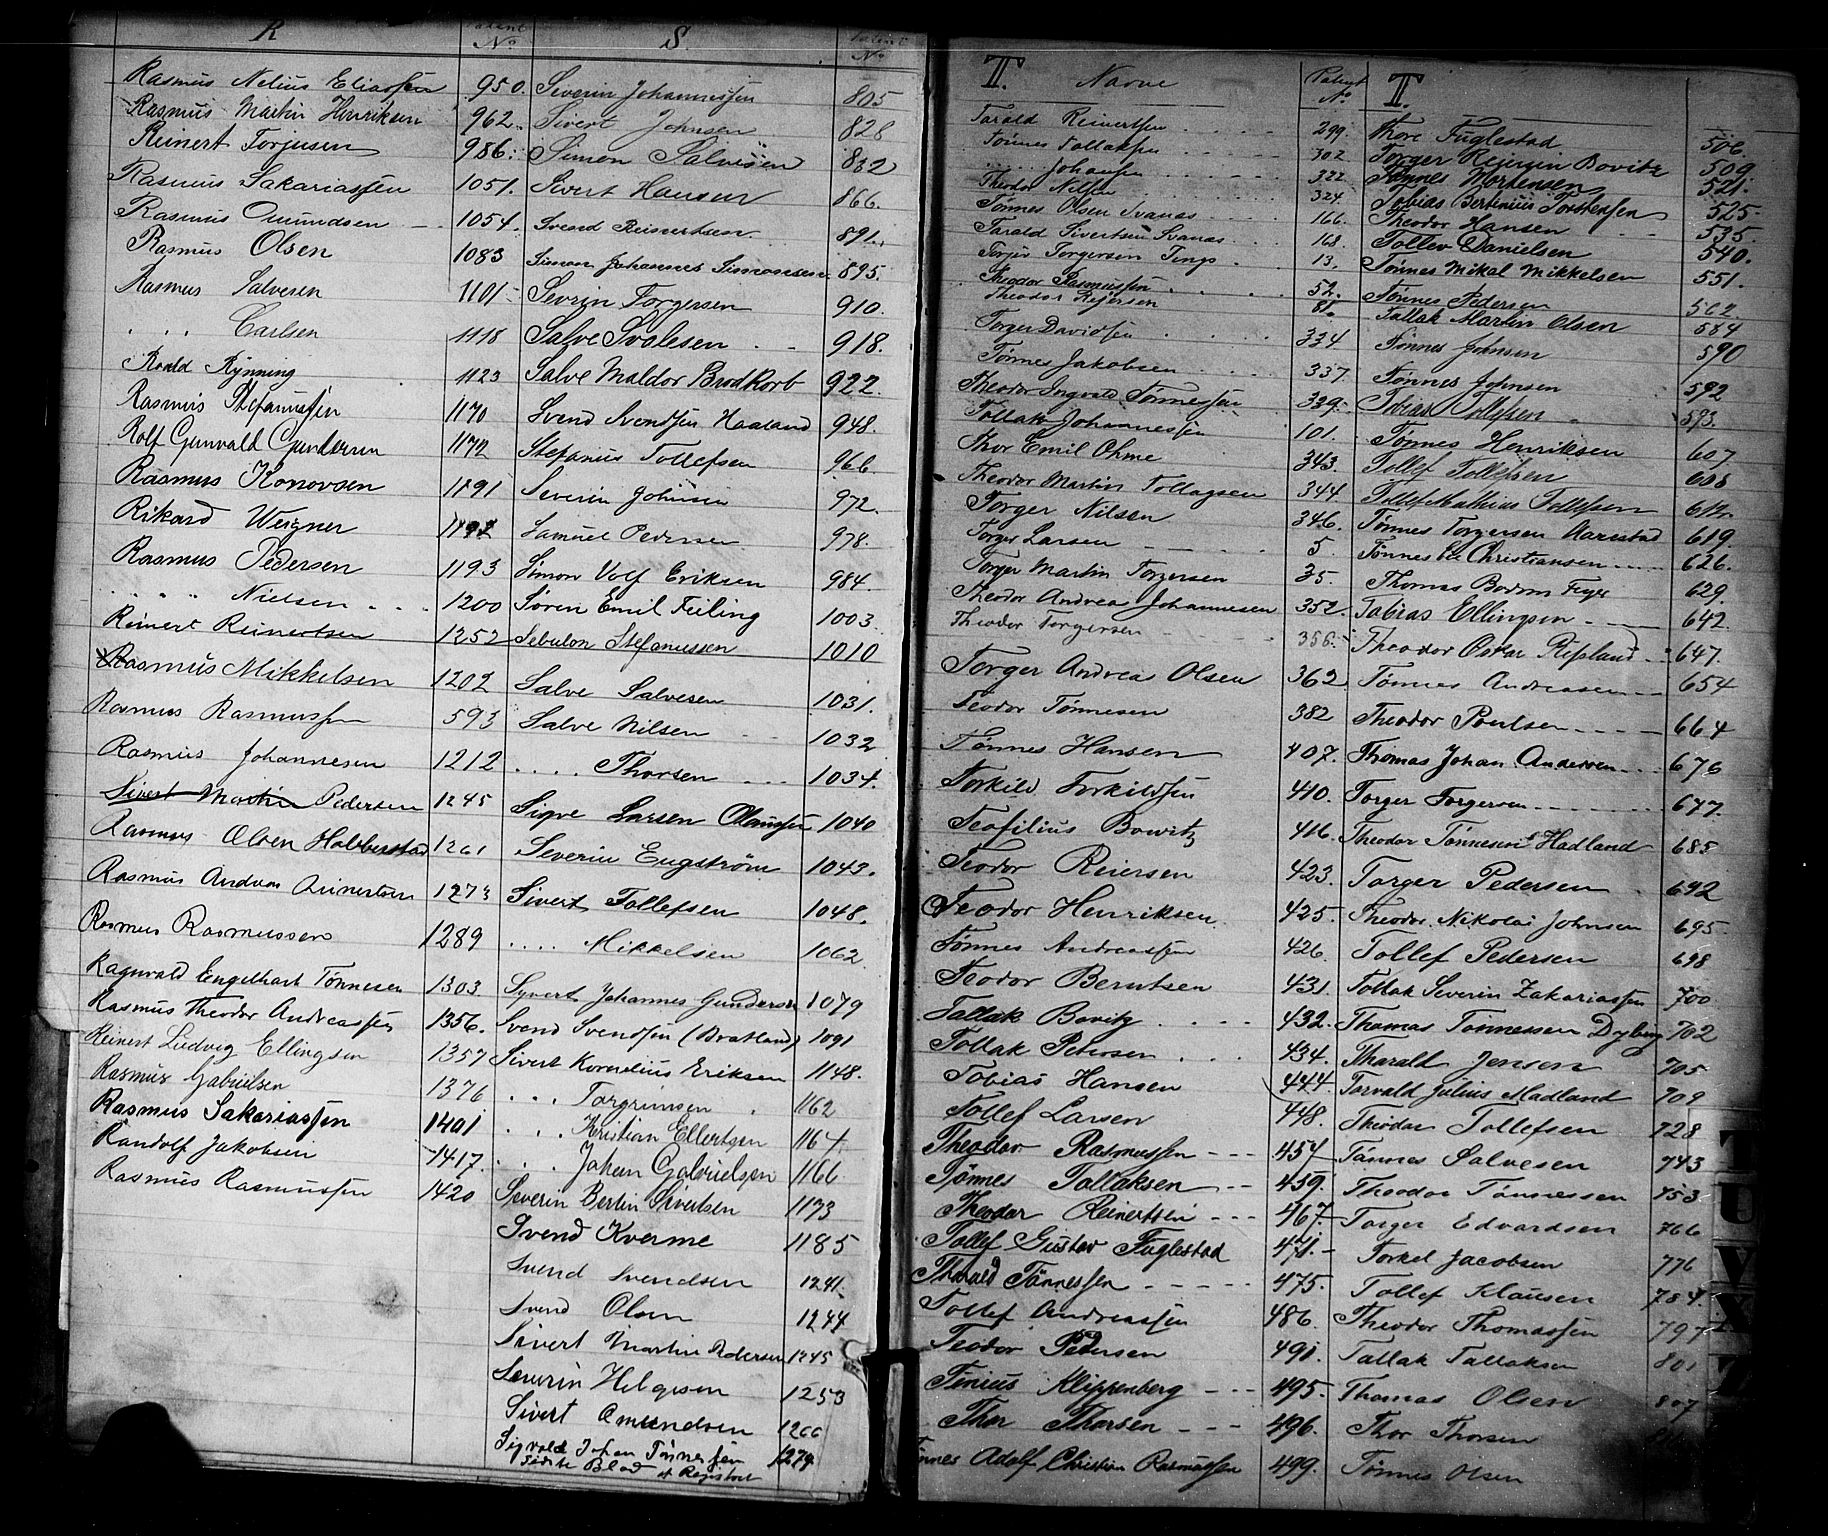 R
Patent No
Rasmus Nelius Eliassen 950.
Rasmus Martin Henriksen 962.
Reinert Torjusen 986.
Rasmus Sakariassen 1051.
Rasmus Omundsen 1054.
Rasmus Olsen 1083
Rasmus Salvesen 1101
. . . Carlsen 1118
Roald Rynning 1123
Rasmus Stefanussen 1170
Rolf Gunvald Gundersen 1172
Rasmus Konovsen 1191
Rikard Wegner
Rasmus Pedersen 1193
. . . . Nielsen . . . 1200
Reinert Reinertsen 1252
Rasmus Mikkelsen 1202
Rasmus Rasmussen 593
Rasmus Johannesen 1212
Sivert Martin Pedersen 1245
Rasmus Olsen Habberstad 1261
Rasmus Andreas Reinertsen 1273
Rasmus Rasmussen 1289
Ragnvald Engelhart Tønnesen 1303
Rasmus Theodor Andreassen 1356.
Reinert Ludvig Ellingsen 1357
Rasmus Gabrielsen 1376
Rasmus Sakariassen 1401
Randolf Jakobsen 1417.
Rasmus Rasmussen 1420
S.
Patent No
Severin Johannessen 805
Sivert Johnsen 828
Simon Salvesen 832
Sivert Hansen 866.
Svend Reinertsen 891.
Simon Johannes Simonsen 895.
Sevrin Torgersen 910.
Salve Svalesen . - 918.
Salve Maldor Brodkorb 922.
Svend Svendsen Haaland 948.
Stefanus Tollefsen 966
Severin Johnsen 972.
Samuel Pedersen 978.
Simon Volf Eriksen 984.
Søren Emil Feiling 1003
Sebulon Stefanussen 1010
Salve Salvesen 1031.
Salve Nilsen 1032
. . . . Thorsen . . . 1034.
Sigve Larsen Olaussen 1040
Severin Engstrøm 1043.
Sivert Tollefsen 1048.
. . . . Mikkelsen 1062
Syvert Johannes Gundersen 1079
Svend Svendsen (Bratland) 1091
Sivert Kornelius Eriksen 1148.
. . . Torgrimsen . 1162
. . . Kristian Ellertsen 1164
. . . Johan Gabrielsen 1166
Severin Bertin Sivertsen 1173
Svend Kverme 1185
Svend Svendsen 1241.
Svend Olsen 1244
Sivert Martin Pedersen 1245
Severin Helgesen 1253
Sivert Omundsen 1266
Sigvald Johan Tønnessen 1274
Sidste Blad af Registret
T. Navne
Patent No
Tarald Reinertsen . . . . 299.
Tønnes Tollaksen . . . 302.
. . . . Johansen . . . 322
Theodor Nilsen 324.
Tønnes Olsen Svanas . . . 166.
Tarald Sivertsen Svanas . . . 168.
Torjus Torgersen Tengs . 13.
Theodor Rasmussen . . . . 52.
Theodor Rejersen 81.
Torger Davidsen . . . . 334
Tønnes Jakobsen . . . . 337.
Theodor Ingvald Tønnesen 339.
Tollak Johannessen 101.
Thor Emil Ohme 343.
Theodor Martin Tollagsen 344
Torger Nilsen 346.
Torger Larsen - - - - 5.
Torger Martin Torgersen 35.
Theodor Andreas Johannesen 352.
Theodor Torgersen 356.
Torger Andreas Olsen 362
Teodor Tønnesen 382
Tønnes Hansen 407.
Torkild Torkildsen 410.
Teofilius Bowitz 416
Teodor Reiersen 423.
Teodor Henriksen 425.
Tønnes Andreassen 426.
Teodor Berntsen 431.
Tallak Bovitz . . . . 432.
Tollak Petersen . . 434.
Tobias Hansen 444
Tollef Larsen 448.
Theodor Rasmussen - - - 454
Tønnes Tollaksen - - 459.
Theodor Reinertsen - - - 467.
Tollef Gustav Fuglestad 471.
Tharald Tønnessen - - - - - 475.
Tollef Andreassen 486.
Teodor Pedersen 491.
Tenius Klippenberg - - - 495.
Thor Thorsen - - - 496.
Tønnes Adolf Christian Rasmussen 499.
T.
Thore Fuglestad 506.
Torger Reiersen Bovitz 509.
Tønnes Mortensen 521.
Tobias Bertinius Torstensen 525.
Theodor Hansen 535.
Tollev Danielsen 540.
Tønnes Mikal Mikkelsen 551.
Tønnes Pedersen 562.
Tallak Martin Olsen 584
Tønnes Johnsen 590
Tønnes Johnsen 592
Tobias Tollefsen 593.
Tønnes Henriksen 607
Tollef Tollefsen 608
Tollef Mathias Tollefsen 612.
Tønnes Torgersen Aarestad 619
Tønnes Christiansen . . . . 626.
Thomas 629
Tobias Ellingsen 642.
Theodor Oskar Refsland 647.
Tønnes Andreasen 654
Theodor Poulsen 664
Thomas Johan Andersen 676
Torger Torgersen 677.
Theodor Tønnesen Hadland 685
Torger Pedersen 692
Theodor Nikolai Johnsen 695
Tollef Pedersen 698
Tollak Severin Zakariassen 700
Thomas Tønnessen Dyberg 702
Tharald Jensen 705
Torvald Julius Madland 709
Theodor Tollefsen 728
Tønnes Salvesen 743
Theodor Tønnessen 753
Torger Edvardsen 766
Torkel Jacobsen 776
Tollef Klausen 784.
Theodor Thomassen 797
Tallak Tallaksen 801
Thomas Olsen 807
Thor Thorsen
Tønnes Olsen
T
U
V
X
Z